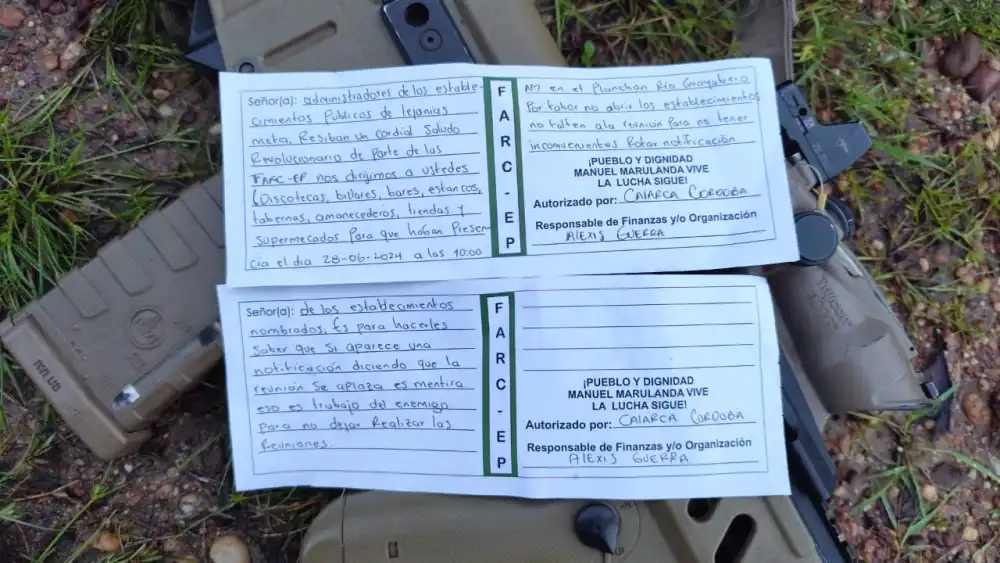 Señor(a): administradores de los estable-
cimientos Públicos de lejanias
meta, Resiban un cordial Saludo
Revolucionario de Parte de las
FARC-EP nos dirijimos a ustedes
(Discotecas, billares, bares, estancos,
tabernas, amanecederos, tiendas y
Supermecados Para que hagan Presen-
cia el dia 28-06-2024 a las 10:00
FARC-EP
AM en el Planchon Rio Guayabero
Por fabor no abrir los establecimientos
no falten ala reunión Para no tener
incomvenientes Rotar notificación
¡PUEBLO Y DIGNIDAD
MANUEL MARULANDA VIVE
LA LUCHA SIGUE!
Autorizado por: CAIARCA CORDOBA
Responsable de Finanzas y/o Organización
ALEXIS GUERRA
Señor(a): de los establecimientos
nombrados, Es para hacerles
Saber que Si aparece una
notificación diciendo que la
reunión Se aplaza es mentira
eso es trabajo del enemigo
Para no dejar Realizar las
Reuniones.
FARC-EP
¡PUEBLO Y DIGNIDAD
MANUEL MARULANDA VIVE
LA LUCHA SIGUE!
Autorizado por: CAIARCA CORDOBA
Responsable de Finanzas y/o Organización
ALEXIS GUERRA